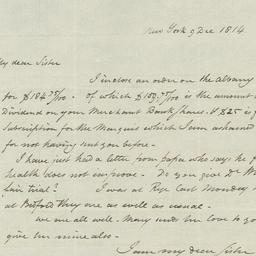 New York 9 Dec 1814
My dear Sister
I inclose an order on the Albany
for $184 75/100 - of which $159 75/100 is the amount
Dividend on your Merchant Bank Shares. & $25 is
Subscription for the Marquis which I am ashamed
for not having sent you before -
I have just had a letter from papa who says he
health does not improve - Do you give Dr
fair trial? I was at Rye last Monday
at Bedford they are as well as usual -
we are all well. Mary unites love to
give him mine also -
I am my dear Sister